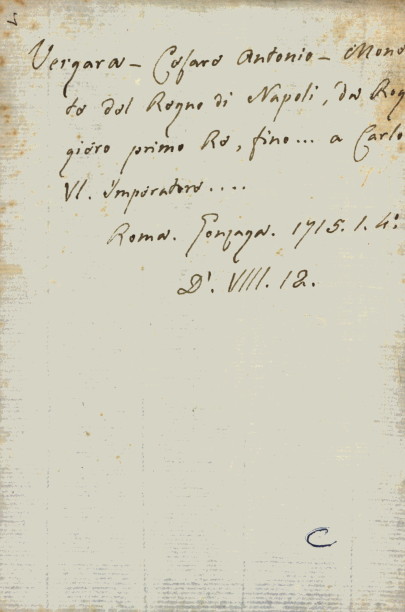 Vergara - Cesare Antonio - Mone
te del Regno di Napoli, da Rog
giero primo Re, fino... a Carlo
VI. imperatore....
Roma. Gonzaga. 1715. 1. 4º
D'. VIII. 12.
C